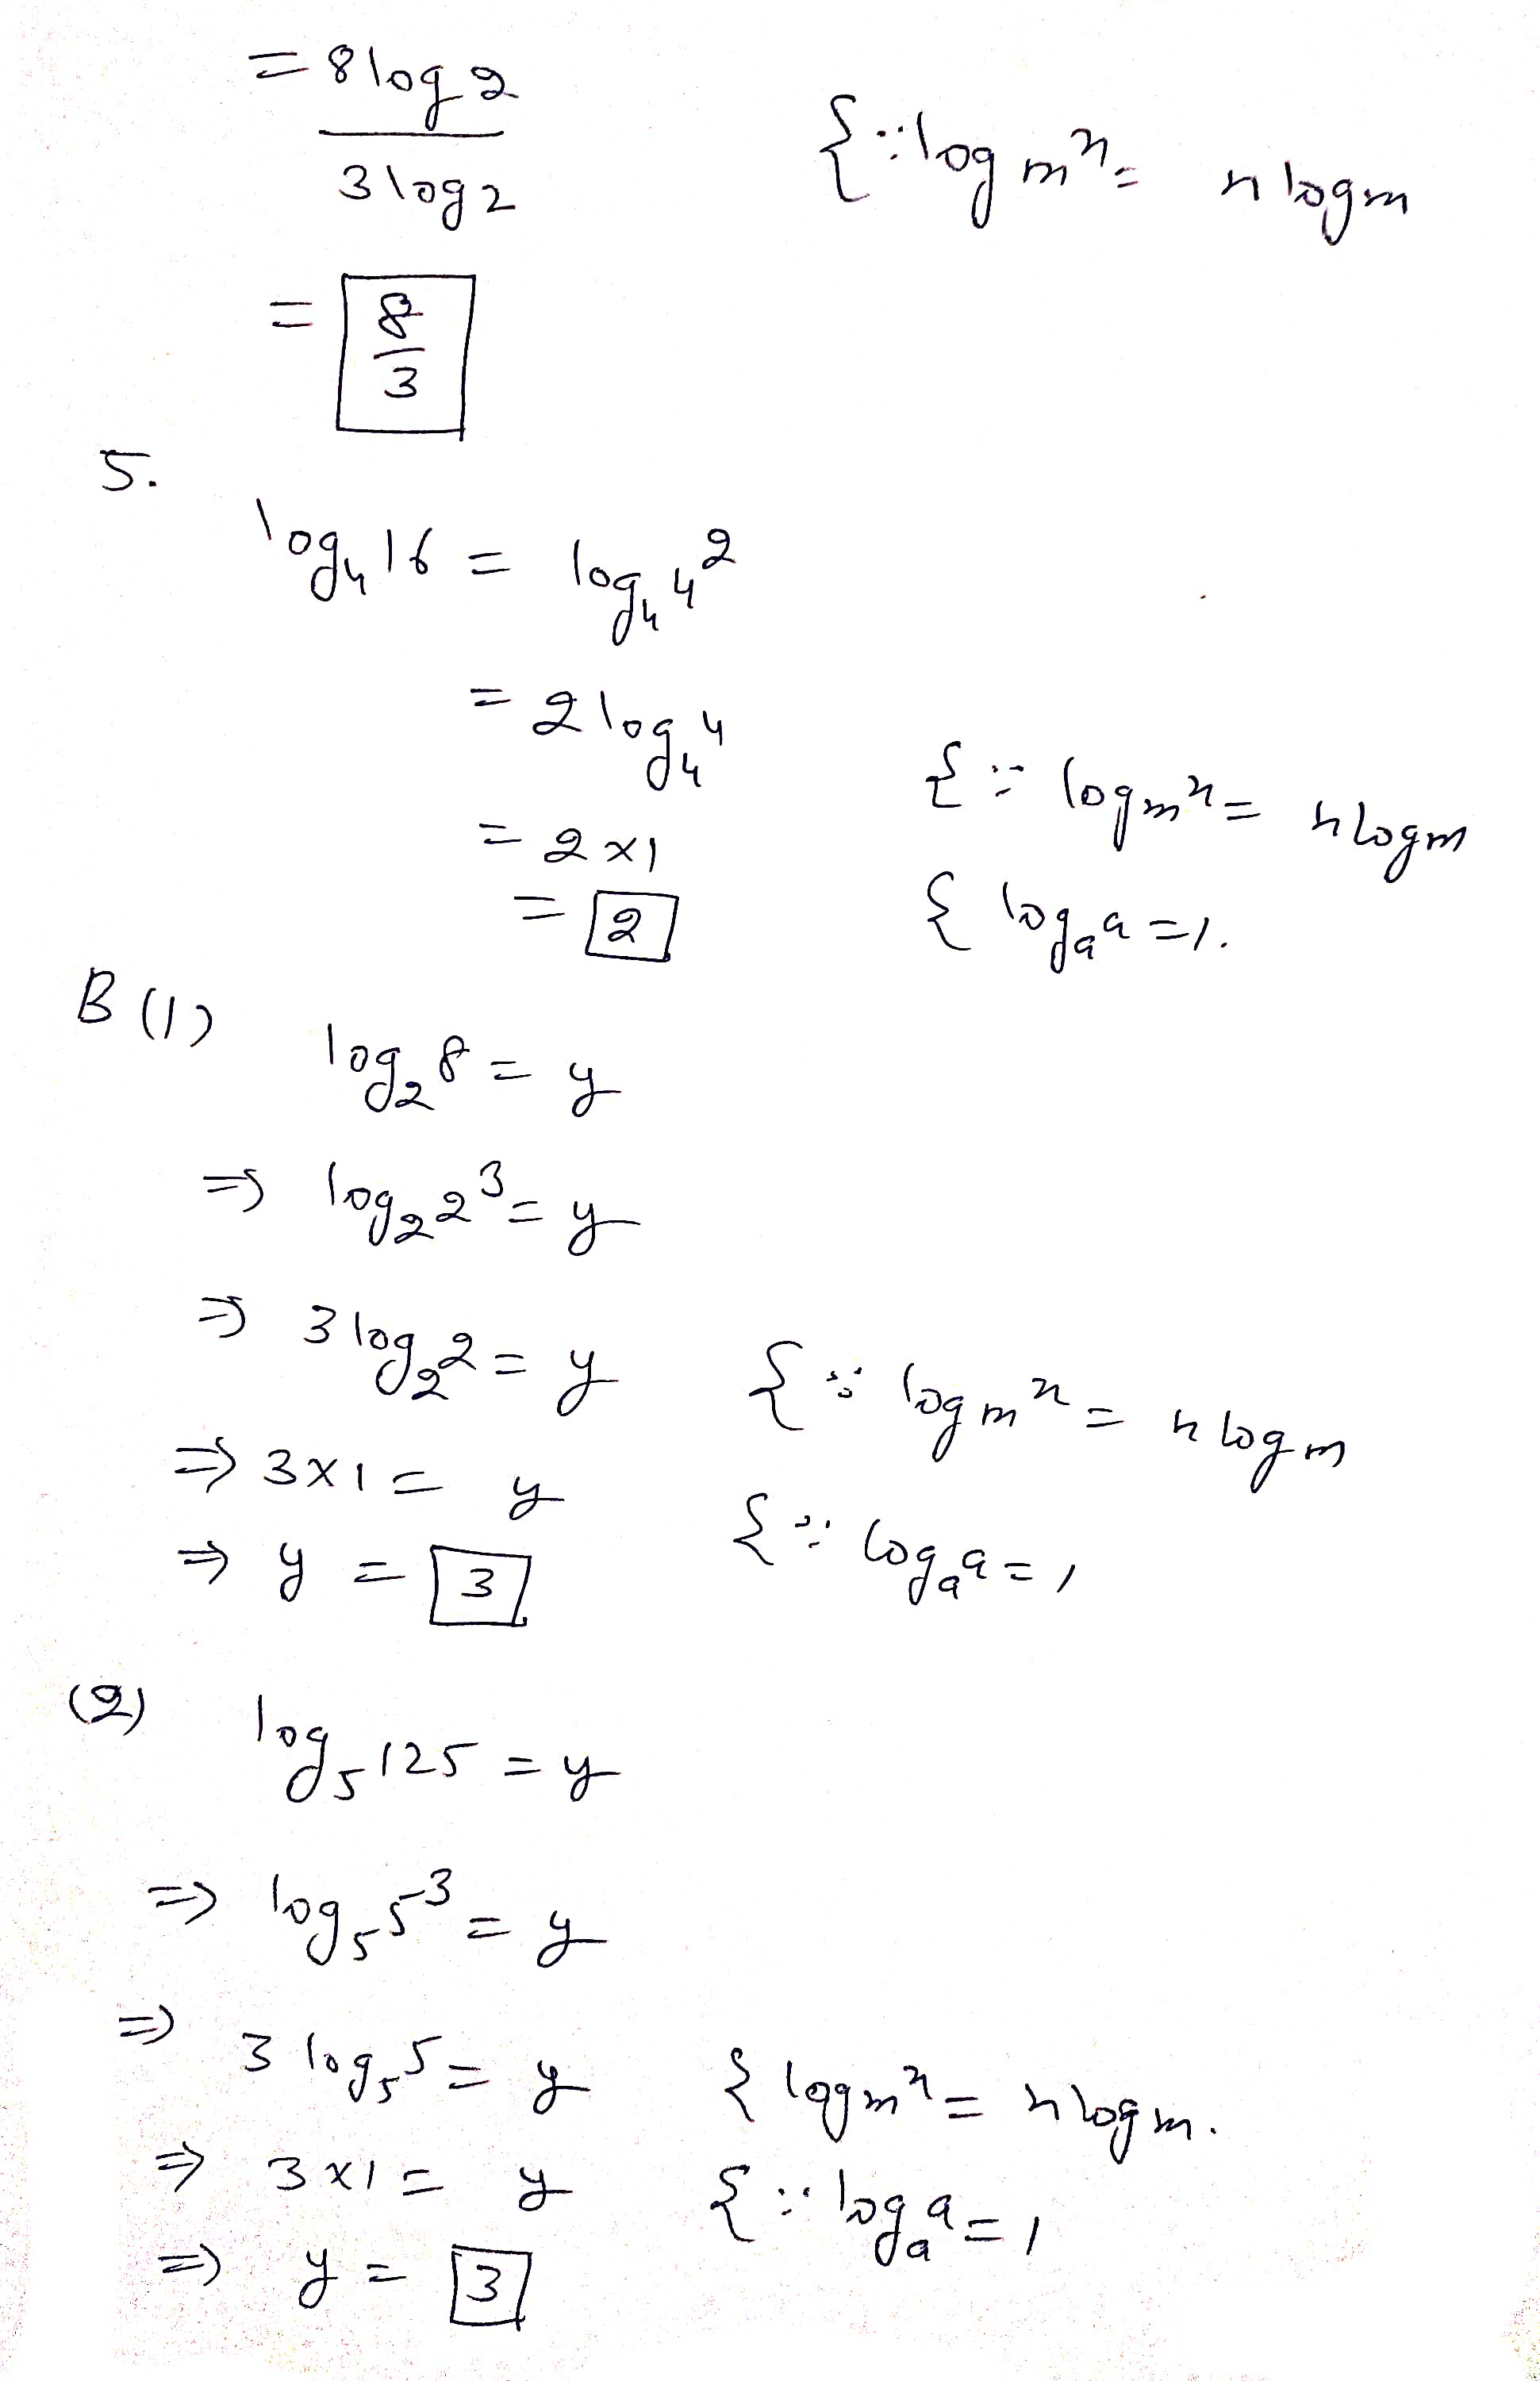 = 8 log 2
3 log 2
{∵ log mⁿ = n log m
= 8
3
5.
log₄ 16 = log₄ 4²
= 2 log₄ 4
{∵ log mⁿ = n log m
= 2 × 1
{ logₐ a = 1.
= 2
B (1)
log₂ 8 = y
⇒ log₂ 2³ = y
⇒ 3 log₂ 2 = y
{∵ log mⁿ = n log m
⇒ 3 × 1 = y
{∵ logₐ a = 1
⇒ y = 3
(2)
log₅ 125 = y
⇒ log₅ 5³ = y
⇒ 3 log₅ 5 = y
{ log mⁿ = n log m.
⇒ 3 × 1 = y
{∵ logₐ a = 1
⇒ y = 3